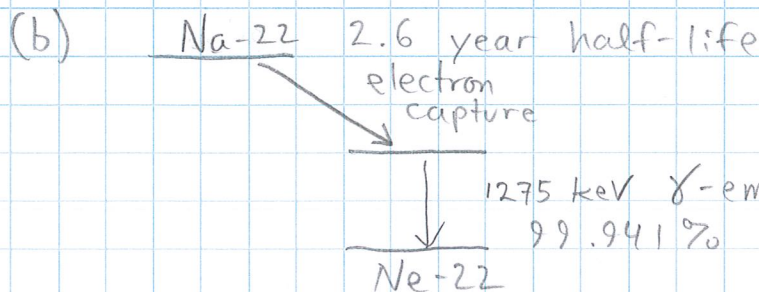 (b) Na-22 2.6 year half-life
electron
capture
1275 keV γ-em
99.941%
Ne-22